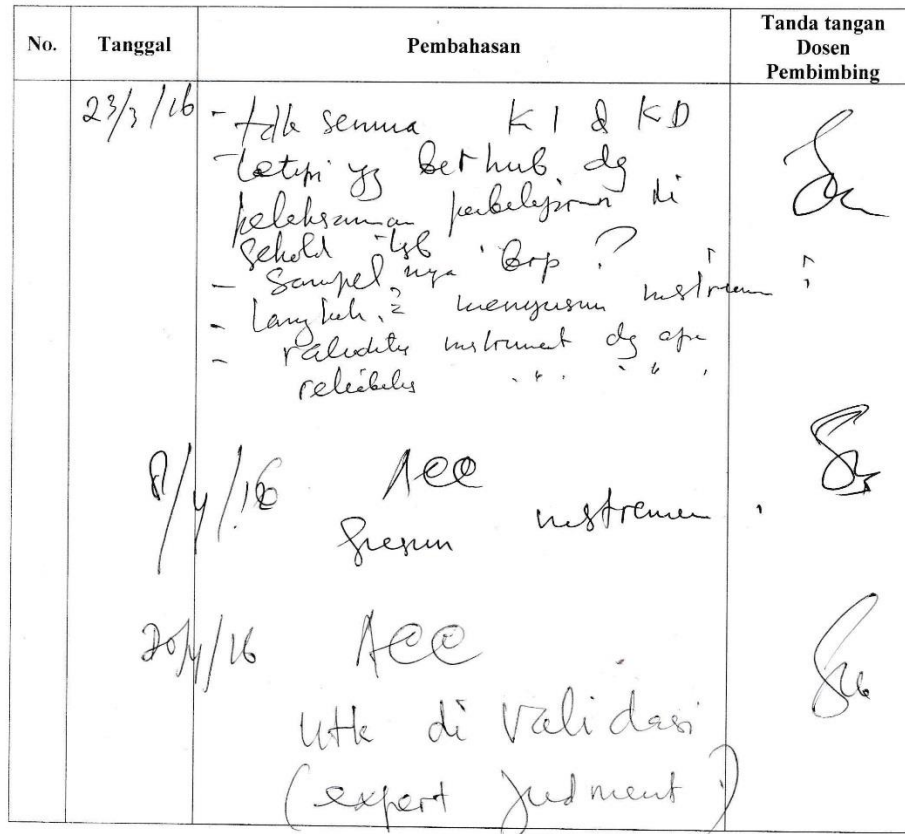 No. Tanggal Pembahasan Tanda tangan Dosen Pembimbing
23/3/16 - tdk semua KI & KD
- tetapi yg berhub dg
pelaksanaan pembelajaran di
sekolah tsb
- Sampel nya brp ?
- langkah 2 menyusun instrumen ?
- validitas instrument dg apa
reliabilitas " " " "
8/4/16 ACC
Susun instrumen .
20/4/16 ACC
utk di validasi
(expert judment)